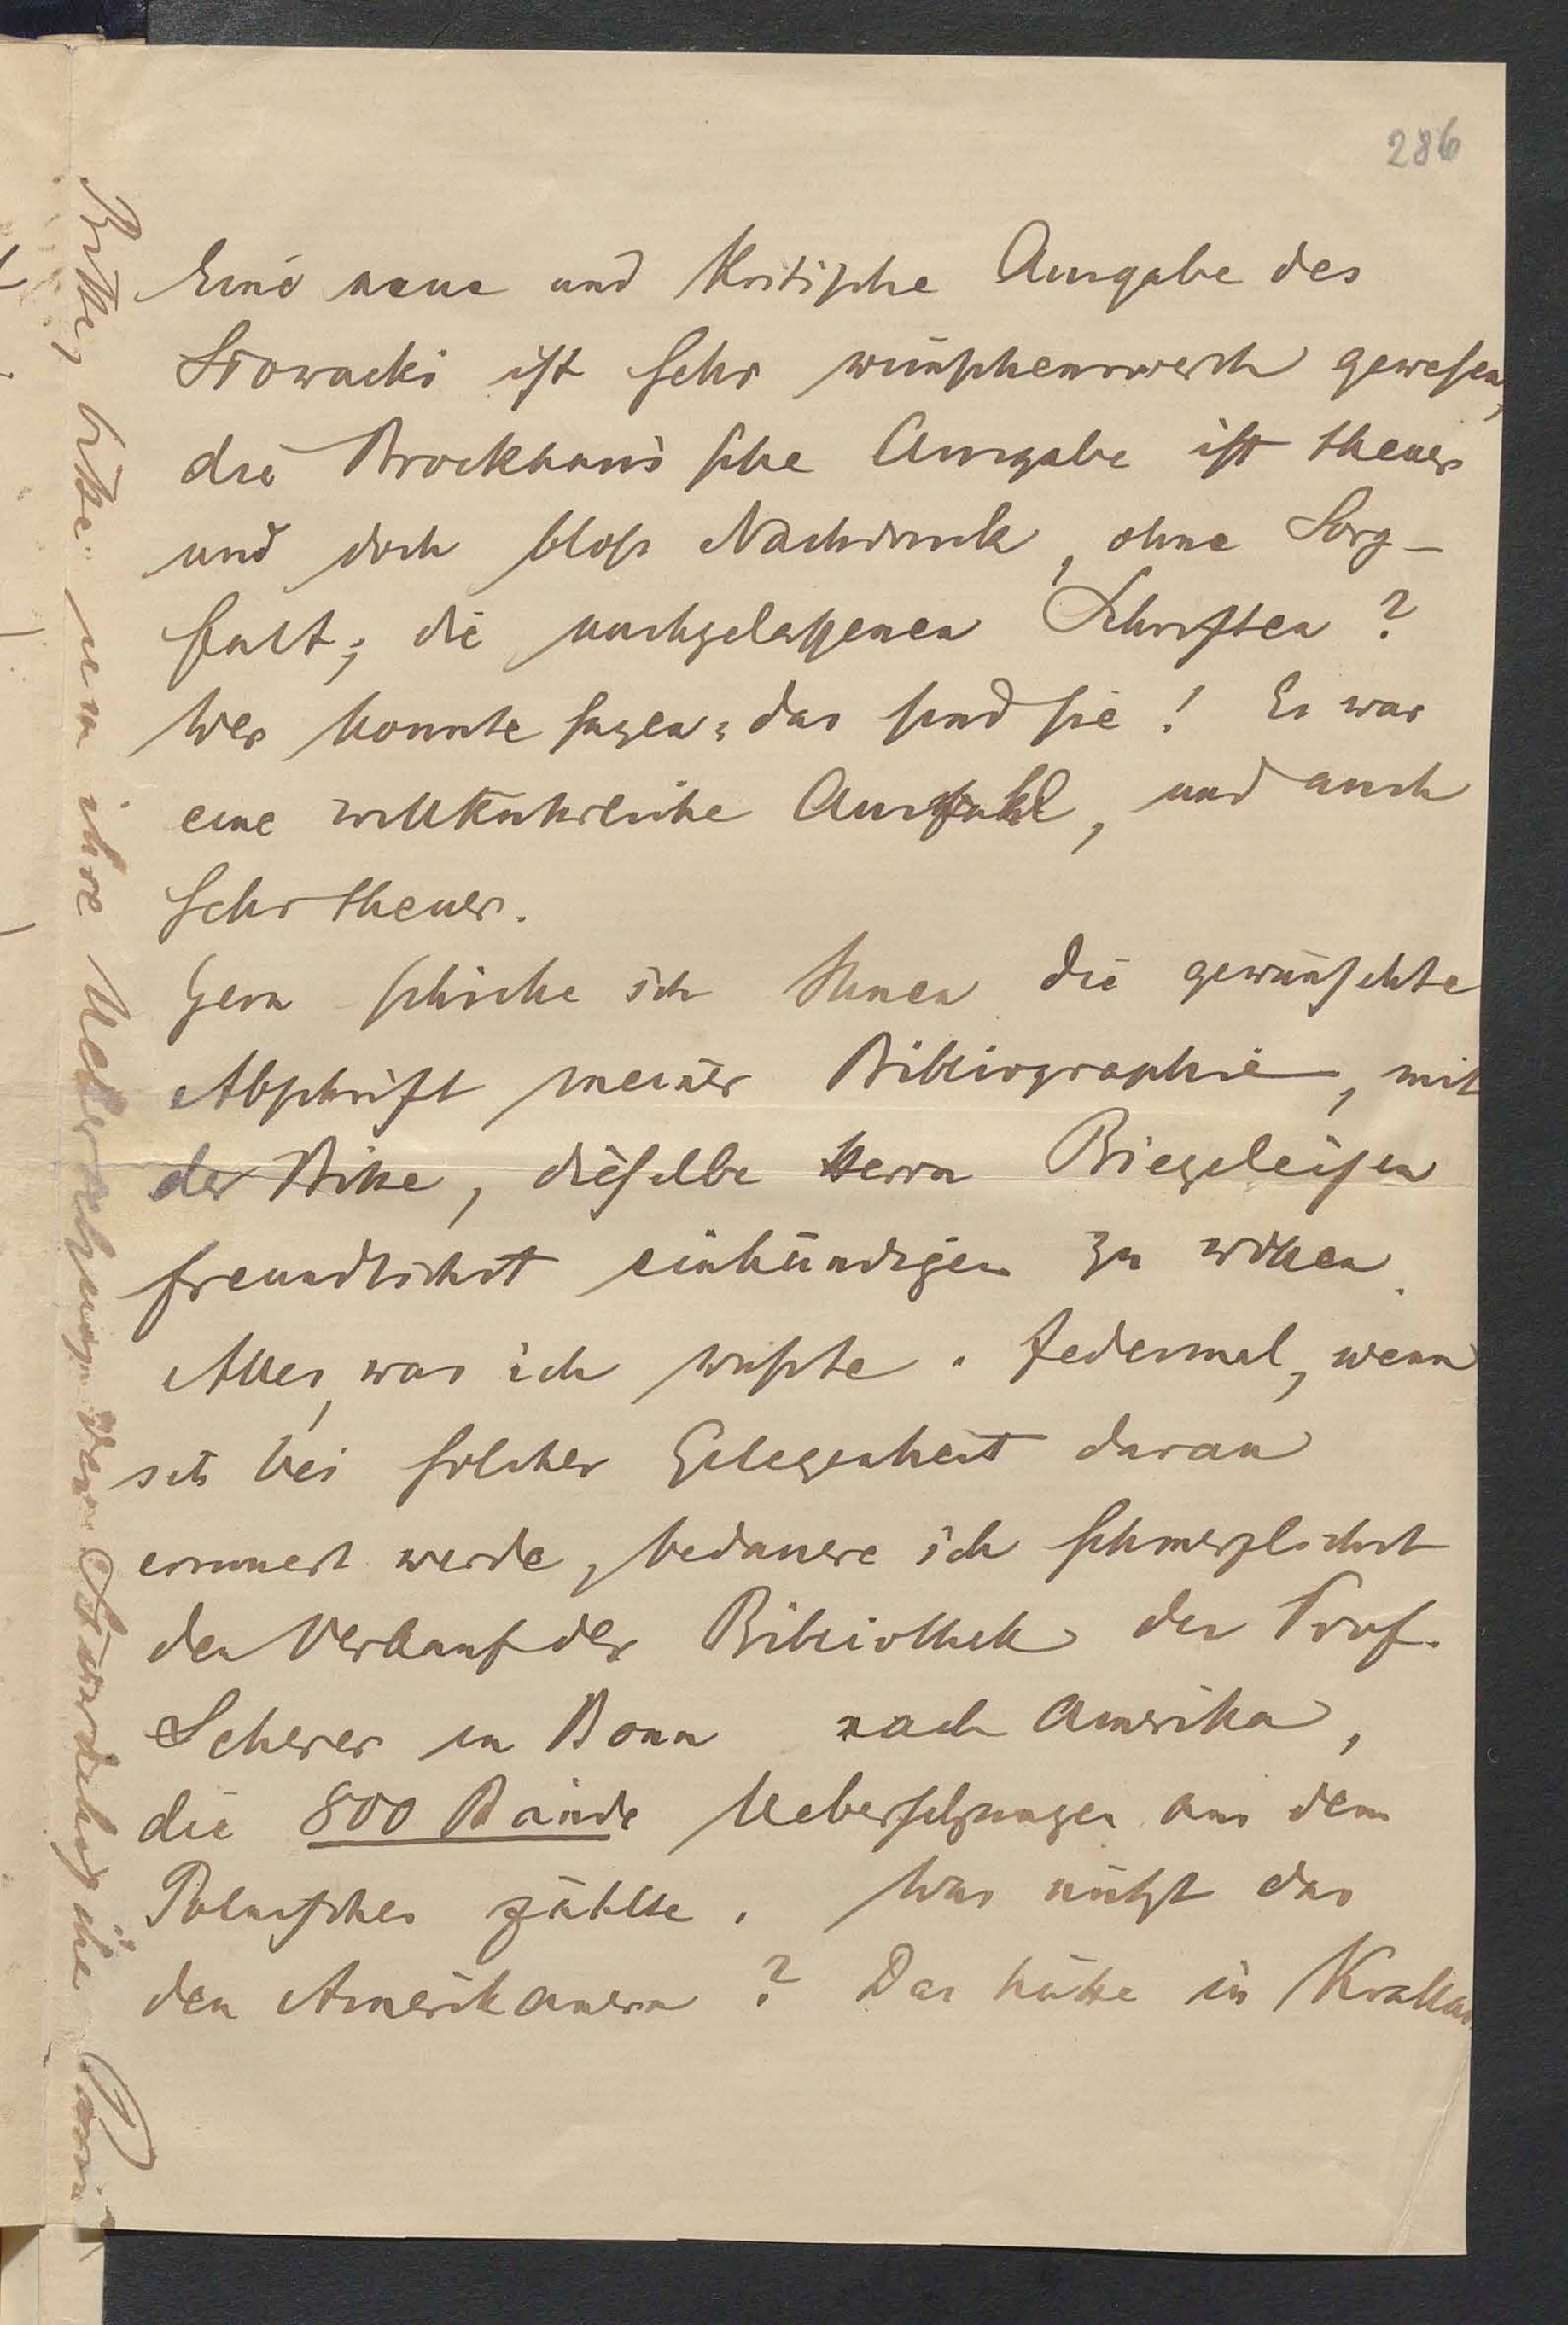 286
Eine neue und kritische Ausgabe des
Słowacki ist sehr wünschenswerth gewesen,
die Brockhaus'sche Ausgabe ist theuer
und doch bloss Nachdruck, ohne Sorg-
falt; die nachgelassenen Schriften?
Wer konnte sagen: das sind sie! Es war
eine willkührliche Auswahl, und auch
sehr theuer.
Gern schicke ich Ihnen die gewünschte
Abschrift meiner Bibliographie, mit
der Bitte, dieselbe Herrn Biegeleisen
freundlichst einhändigen zu wollen.
Alles, was ich wusste. Jedesmal, wenn
ich bei solcher Gelegenheit daran
erinnert werde, bedauere ich schmerzlichst
den Verkauf der Bibliothek des Prof.
Scherer in Bonn nach Amerika,
die 800 Bände Uebersetzungen aus dem
Polnischen zählte. Was nützt das
den Amerikanern? Das hätte in Krakau
Bitte, bitte um ihre Ueberzeugung